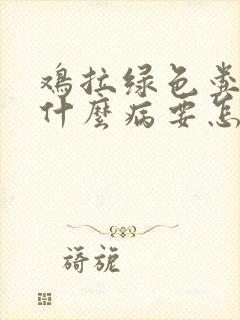 鸡拉绿色粪
什麼病要怎
旖旎